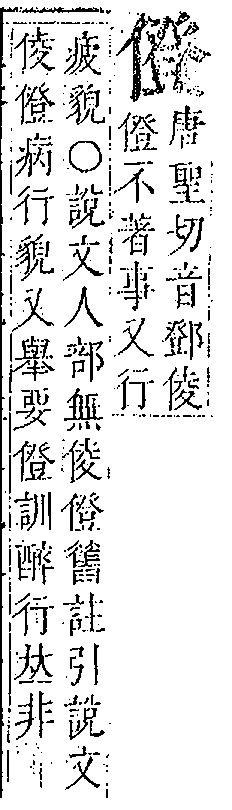 僜
唐聖切音鄧倰
僜不著事又行
疲貌○說文人部無倰僜舊註引說文
倰僜病行貌又舉要僜訓醉行𠀤非